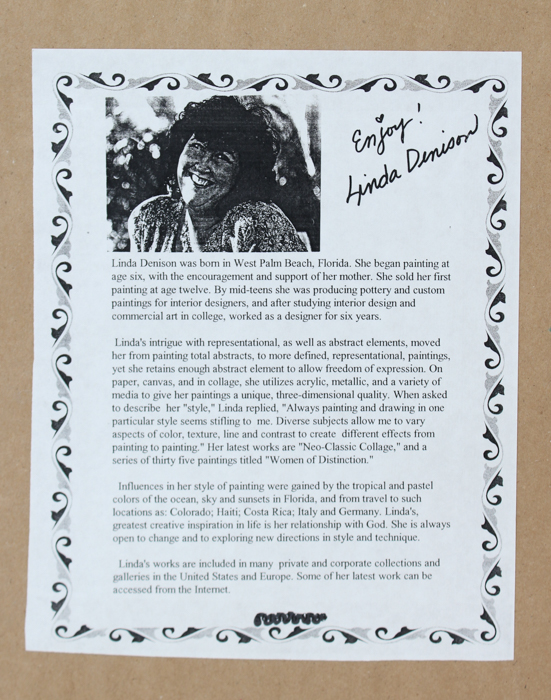 Enjoy!
Linda Denison
Linda Denison was born in West Palm Beach, Florida. She began painting at
age six, with the encouragement and support of her mother. She sold her first
painting at age twelve. By mid-teens she was producing pottery and custom
paintings for interior designers, and after studying interior design and
commercial art in college, worked as a designer for six years.
Linda's intrigue with representational, as well as abstract elements, moved
her from painting total abstracts, to more defined, representational, paintings,
yet she retains enough abstract element to allow freedom of expression. On
paper, canvas, and in collage, she utilizes acrylic, metallic, and a variety of
media to give her paintings a unique, three-dimensional quality. When asked
to describe her "style," Linda replied, "Always painting and drawing in one
particular style seems stifling to me. Diverse subjects allow me to vary
aspects of color, texture, line and contrast to create different effects from
painting to painting." Her latest works are "Neo-Classic Collage," and a
series of thirty five paintings titled "Women of Distinction."
Influences in her style of painting were gained by the tropical and pastel
colors of the ocean, sky and sunsets in Florida, and from travel to such
locations as: Colorado; Haiti; Costa Rica; Italy and Germany. Linda's,
greatest creative inspiration in life is her relationship with God. She is always
open to change and to exploring new directions in style and technique.
Linda's works are included in many private and corporate collections and
galleries in the United States and Europe. Some of her latest work can be
accessed from the Internet.